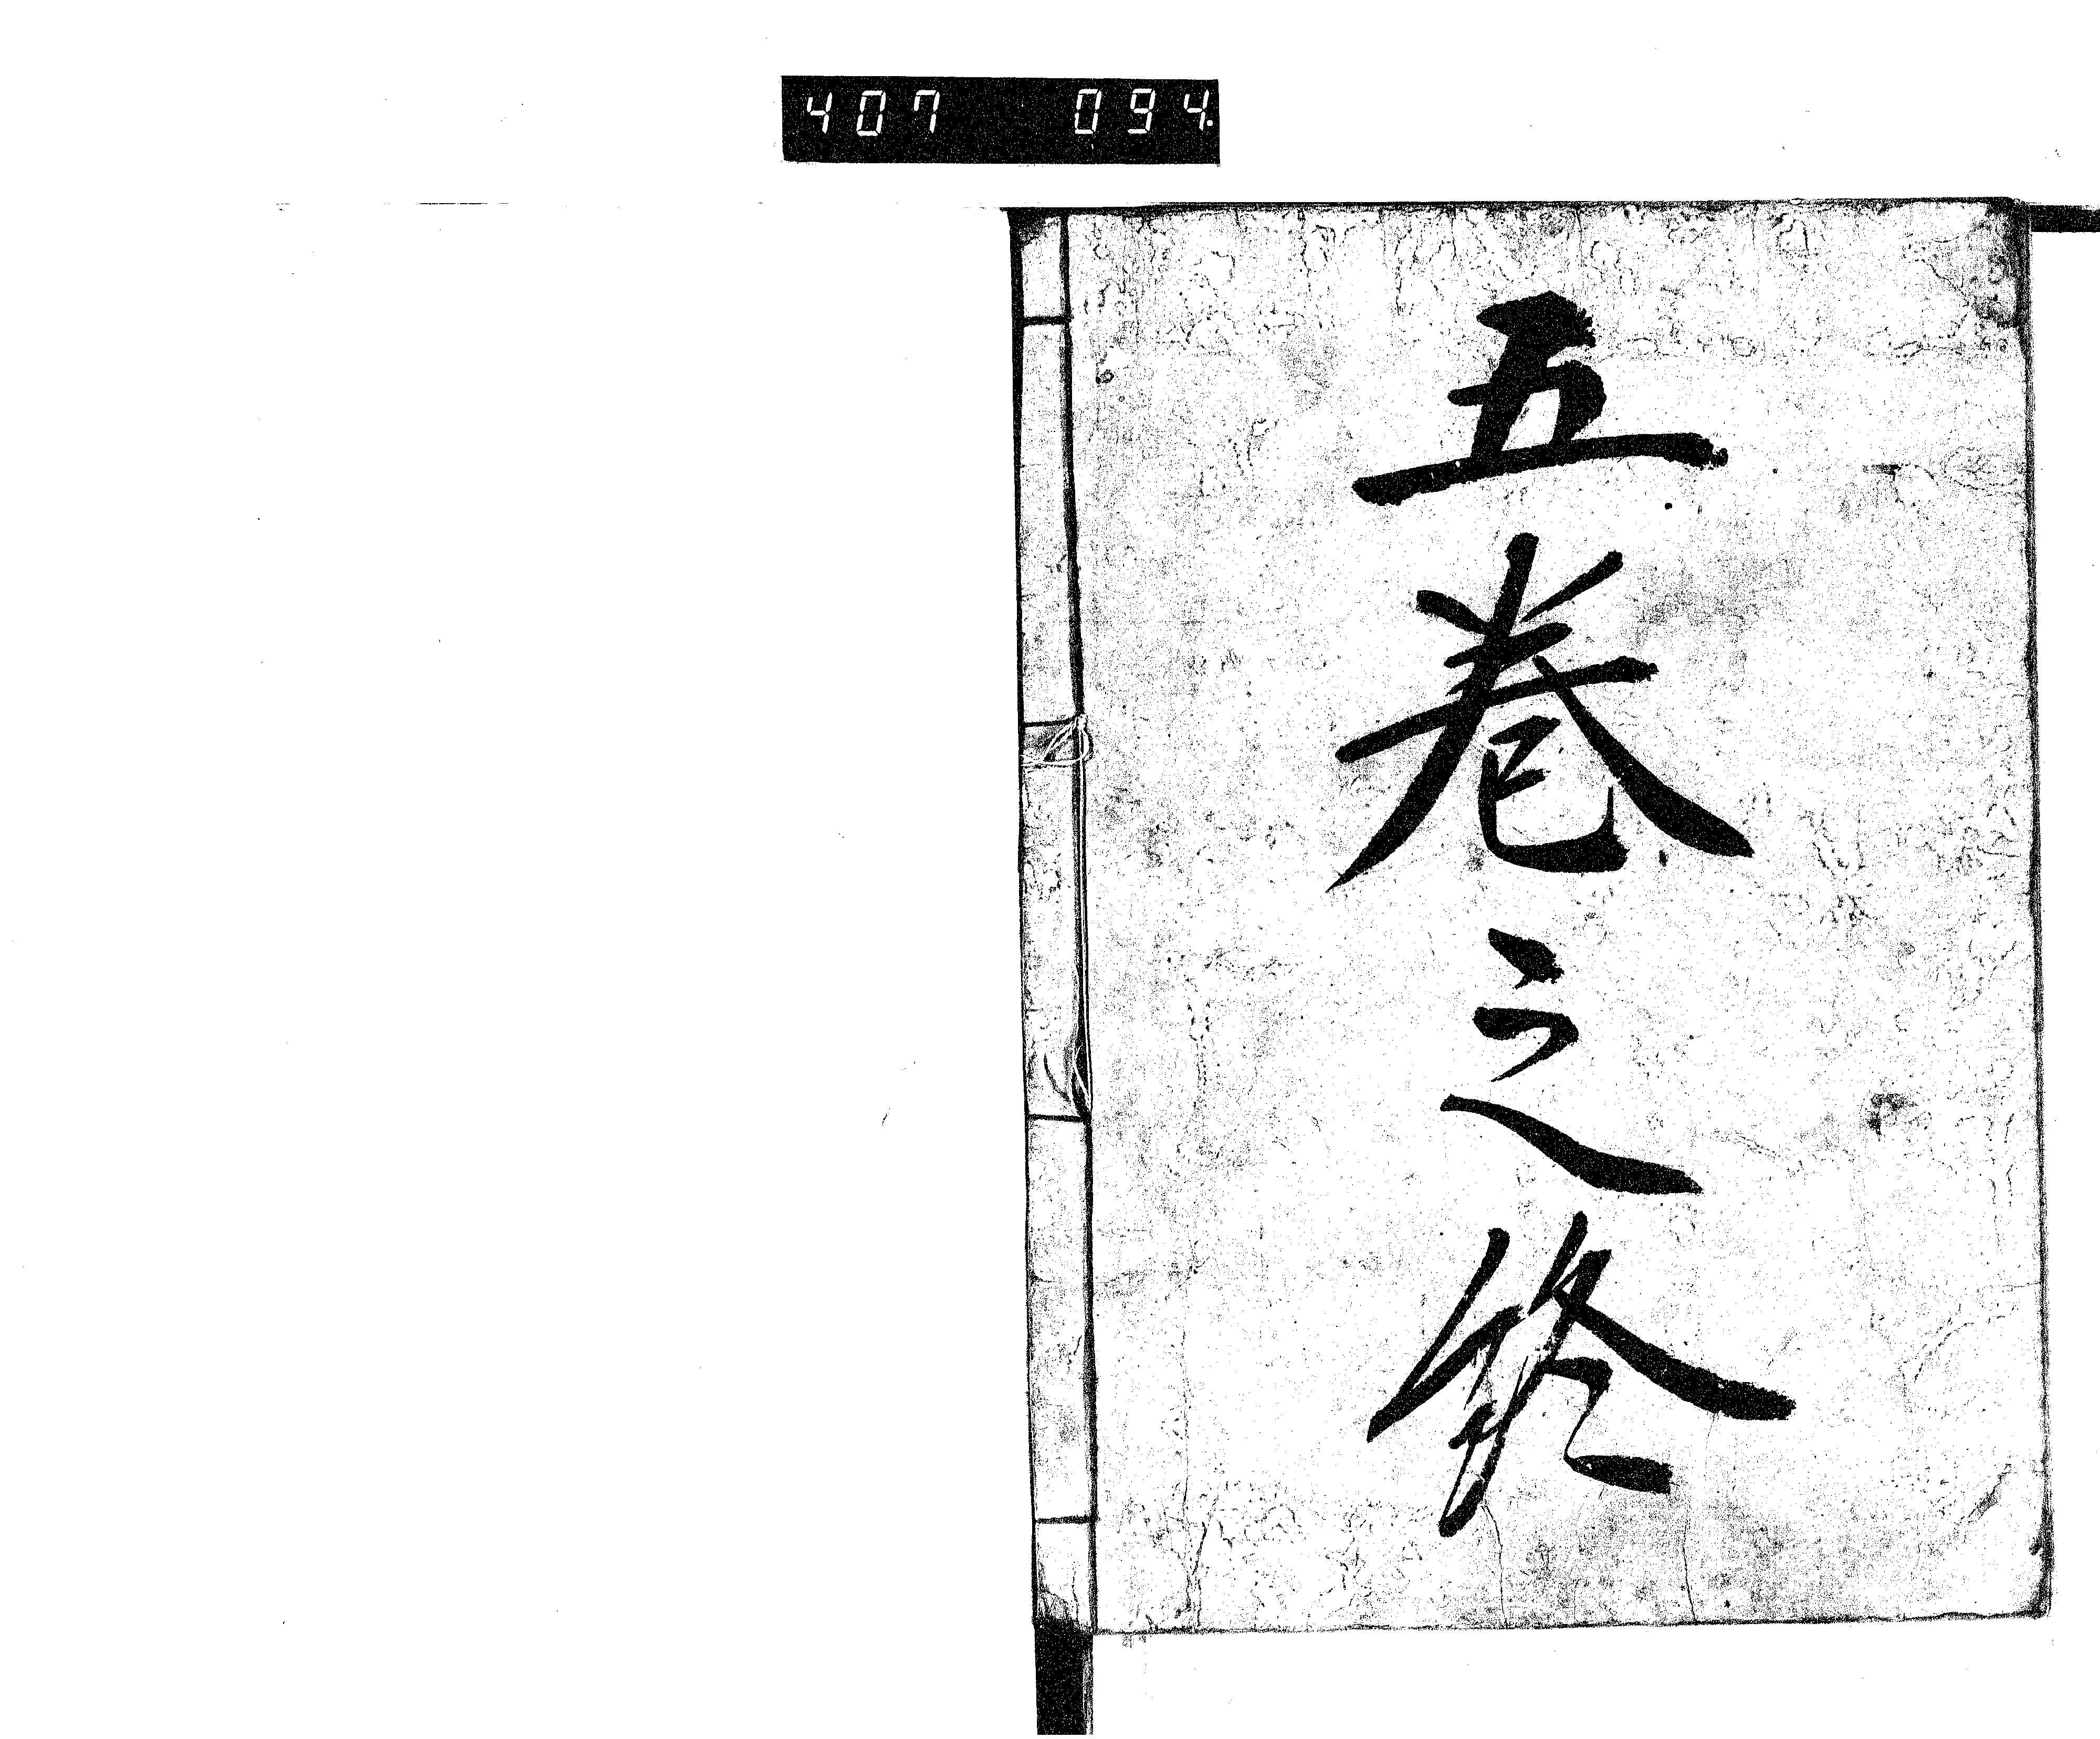 407 094.
五卷之終